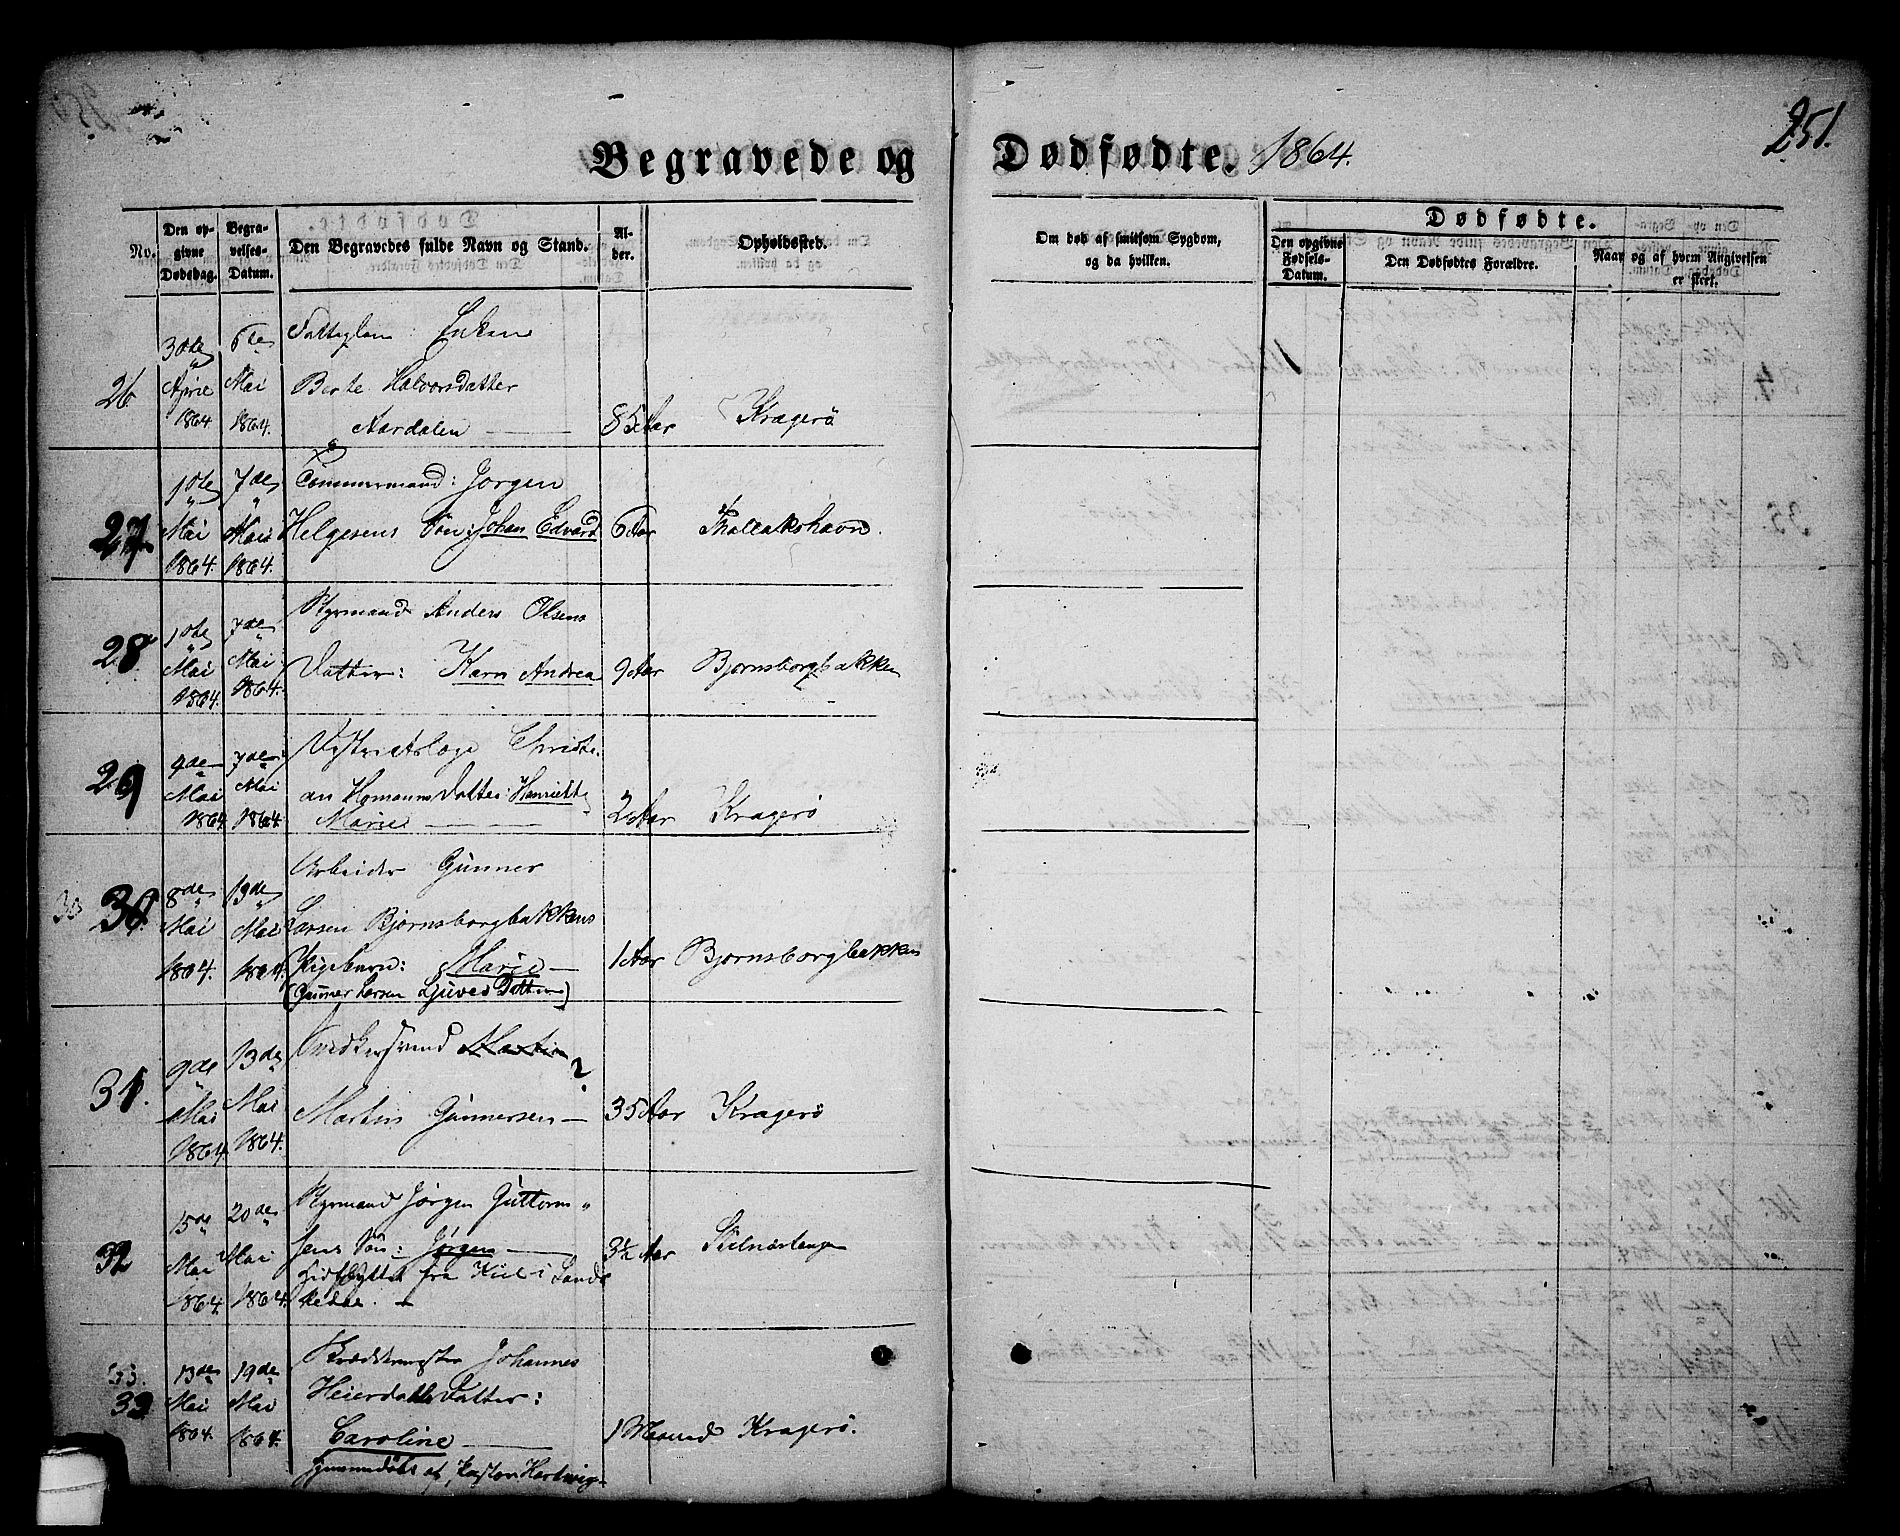 251.
Begravede og Dødfødte. 1864.
No.
Den opgivne Dødsdag.
Begravelses-Datum.
Den Begravedes fulde Navn og Stand.
Alder.
Opholdssted.
Om død af smitsom Sygdom, og da hvilken.
Dødfødte.
Den opgivne Fødsels-Datum.
Den Dødfødtes Forældre.
Naar og af hvem Angivelsen er skeet.
26. 30te April 1864 6te Mai 1864. Fattiglem: Enken
Berte Halvorsdatter
Aardalen 85 Aar Kragerö
27 1ste Mai 1864. 7de Mai 1864. Tömmermand: Jörgen
Helgesens Sön: Johan Edvard 6 Aar Thallakshavn.
28 1ste Mai 1864. 7de Mai 1864. Styrmand Anders Olsens
Datter: Karn Andrea 9 Aar Bjornsborgbakken
29 4de Mai 1864. 7de Mai 1864. Distriktslæge Christi-
an Homanns Datter: Henriette
Marie 2 Aar Kragerö
30 8de Mai 1864. 13de Mai 1864. Arbeider Gunner
Larsen Bjornsborgbakkens
Pigebarn: Marie 1 Aar Bjornsborgbakken
(Gunner Larsen Datter)
31. 9de Mai 1864. 13de Mai 1864. Snedkersvend Martin
Martin Gunnersen ? 35 Aar Kragerö
32 15de Mai 1864. 20de Mai 1864. Styrmand Jörgen Guttorm-
sens Sön: Jörgen 3½ Aar
hidflyttet fra Kiil i Sande-
kedal.
33.
33 13de Mai 1864. 19de Mai 1864. Johannes
Heierdahls Datter:
Caroline 1 Maaned Kragerö.
hjemmedöbt af Pastor Hartwig